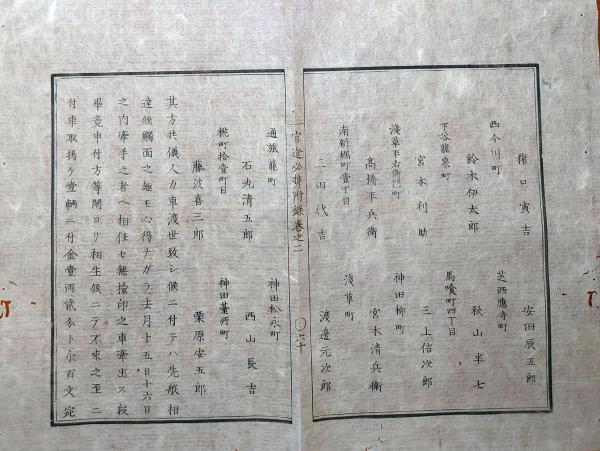 猪口寅吉　安田辰五郎
西今川町　芝西應寺町
鈴木伊太郎　秋山半七
下谷龍泉町　馬喰町四丁目
宮本利助　三上信次郎
淺草平右衛門町　神田柳町
高橋平兵衛　宮本清兵衛
南新堀町壹丁目　淺草町
三田代吉　渡邊元次郎
官途必携附録巻之二　〇六十
通旅籠町　神田松永町
石丸清五郎　西山長吉
糀町拾壹町目　神田臺所町
藤波喜三郎　栗原安五郎
其方共儀人力車渡世致シ候ニ付テハ先般相
達候觸面之趣モ心得ナガラ去月十五日十六日
之內牽手之者ヘ相任セ無撿印之車牽出ス段
畢竟申付方等閑ヨリ相生候ニテ不束之至ニ
付車取揚ケ壹輛ニ付金壹兩貳分ト永百文宛